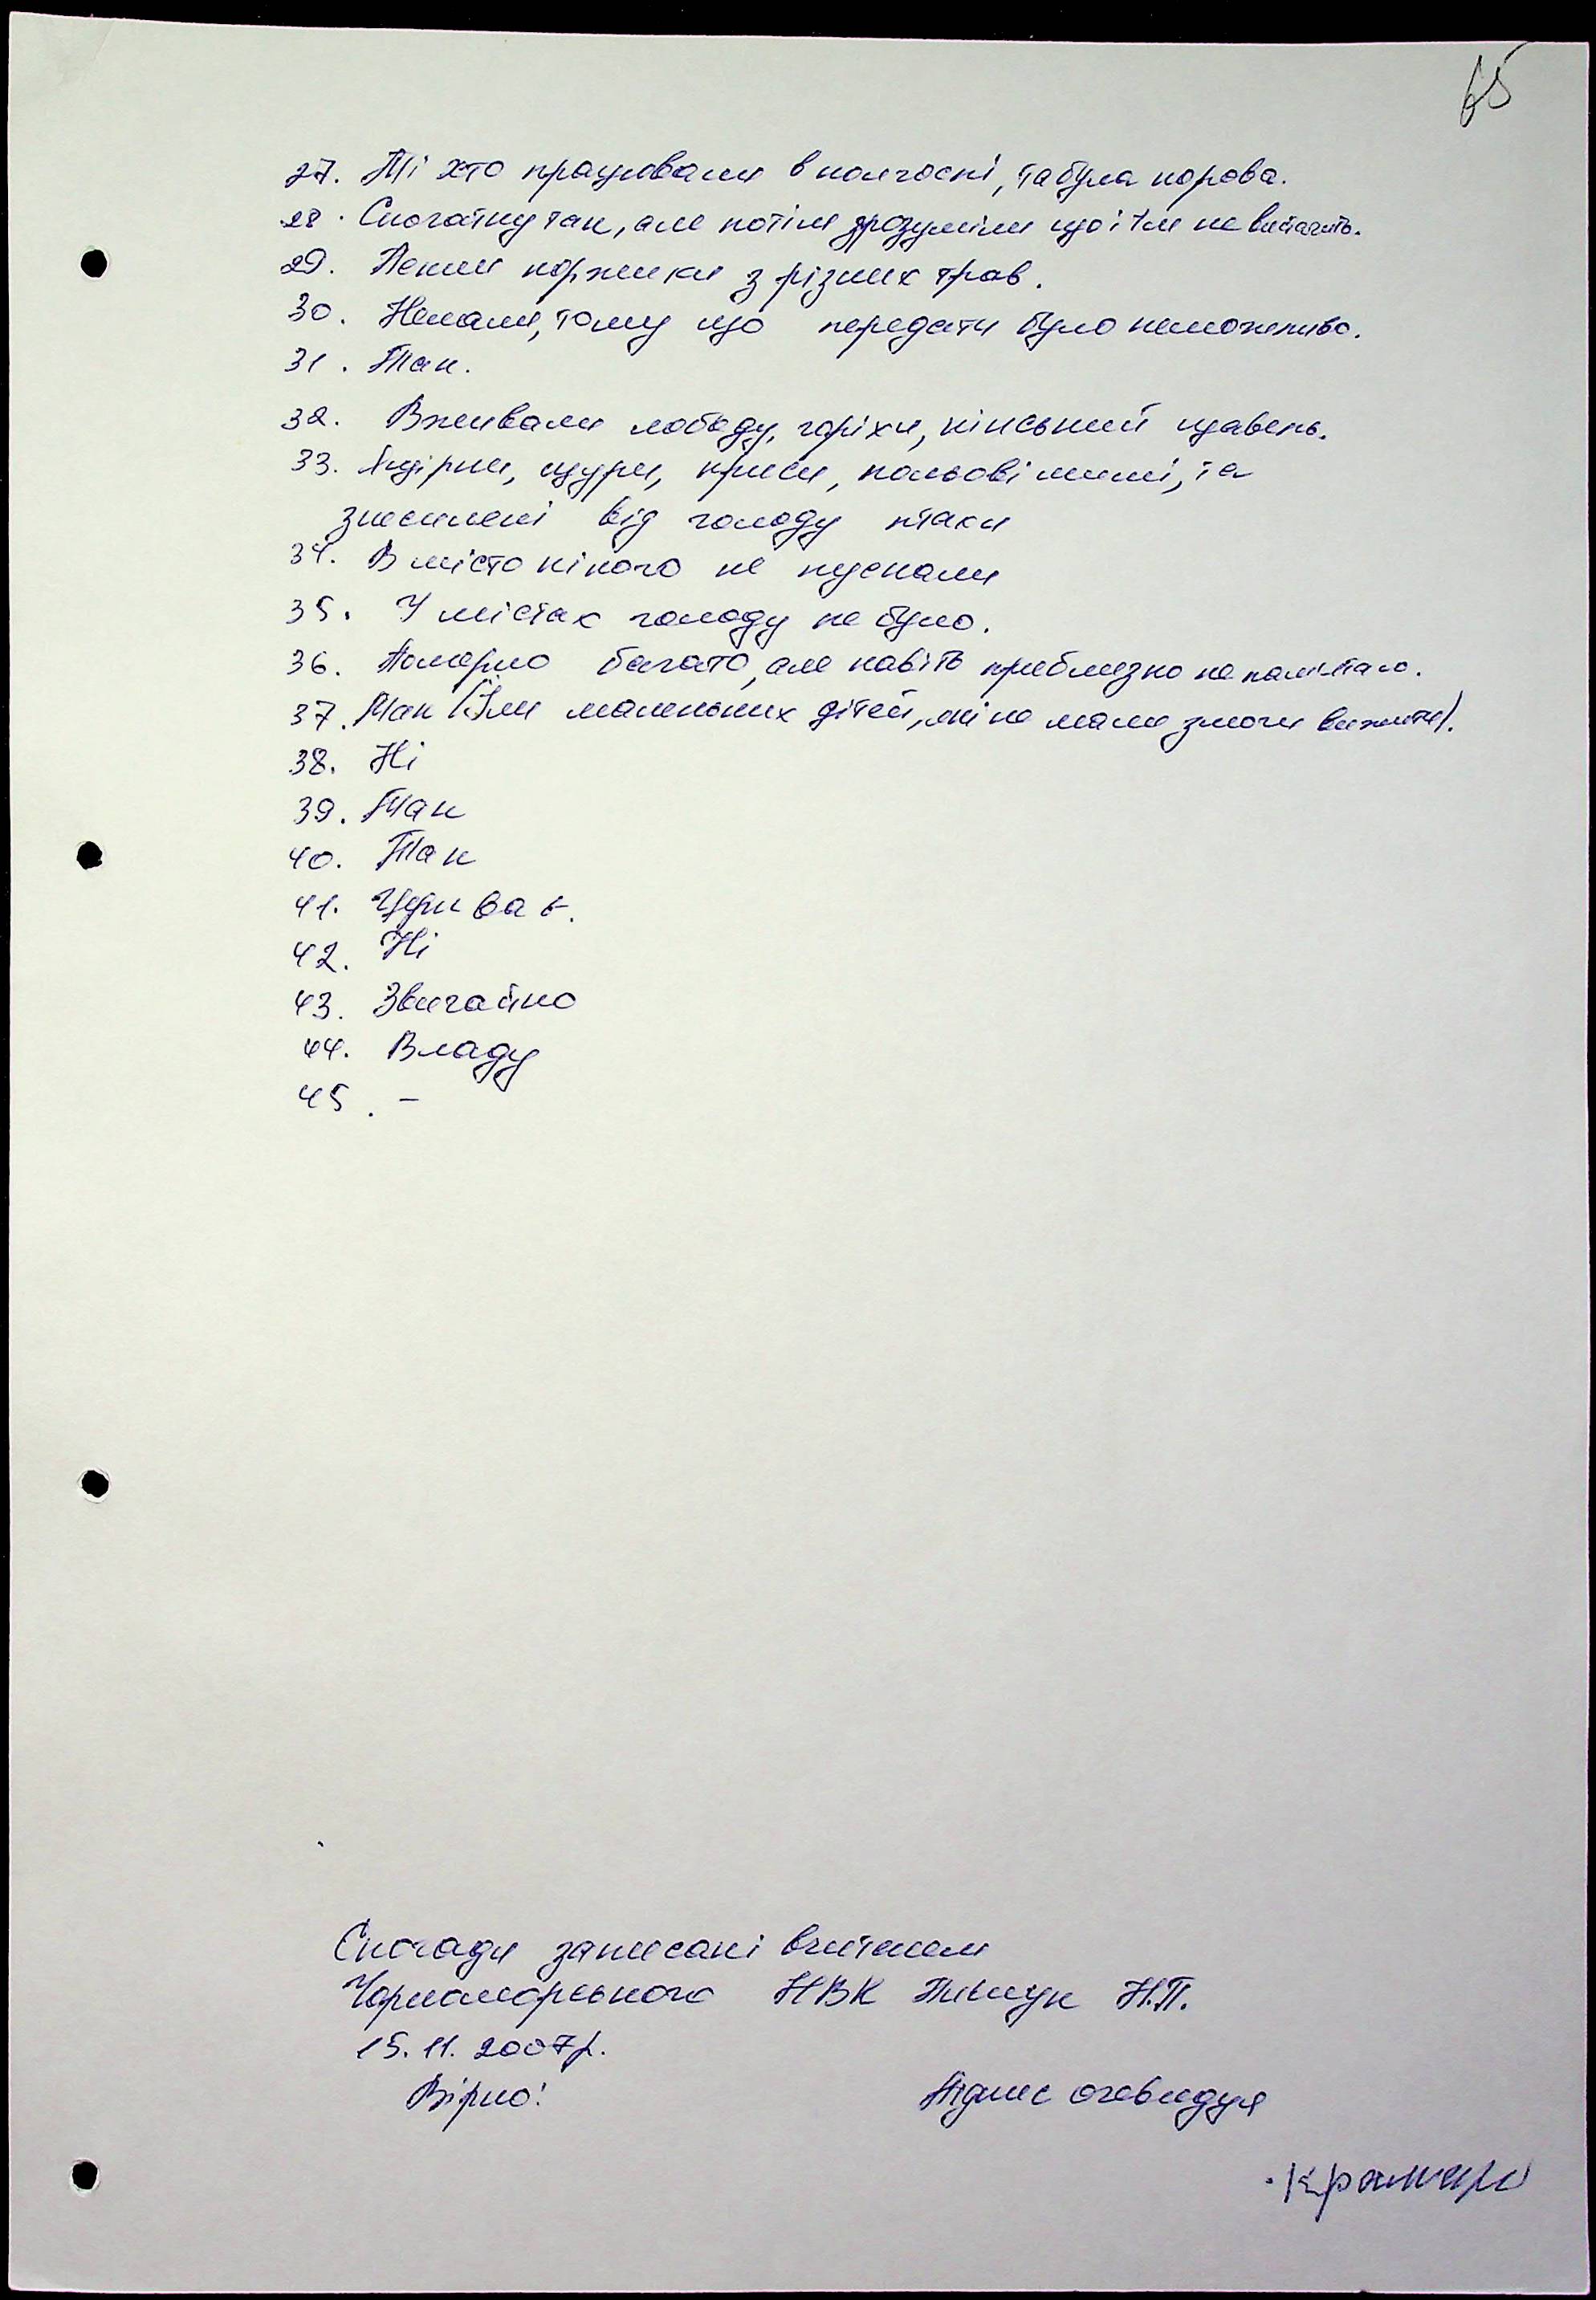 65
27. Ті хто працювали в колгоспі, та була корова.
28. Спочатку так, але потім зрозуміли що і їм не вистачить.
29. Пекли коржики з різних трав.
30. Немали, тому що передати було неможливо.
31. Так.
32. Вживали лободу, горіхи, кінський щавель.
33. Ящірки, щури, криси, польові миші, та
знесилені від голоду птахи
34. В місто нікого не пускали
35. У містах голоду не було.
36. Померло багато, але навіть приблизно не памʼятаю.
37. Так (Їли маленьких дітей, які не мали змоги вижити).
38. Ні
39. Так
40. Так
41.
42. Ні
43. Звичайно
44. Владу
45. -
Спогади записані вчителем
Чорноморського НВК Н.П.
15.11.2007р.
Вірно! Підпис очевидця